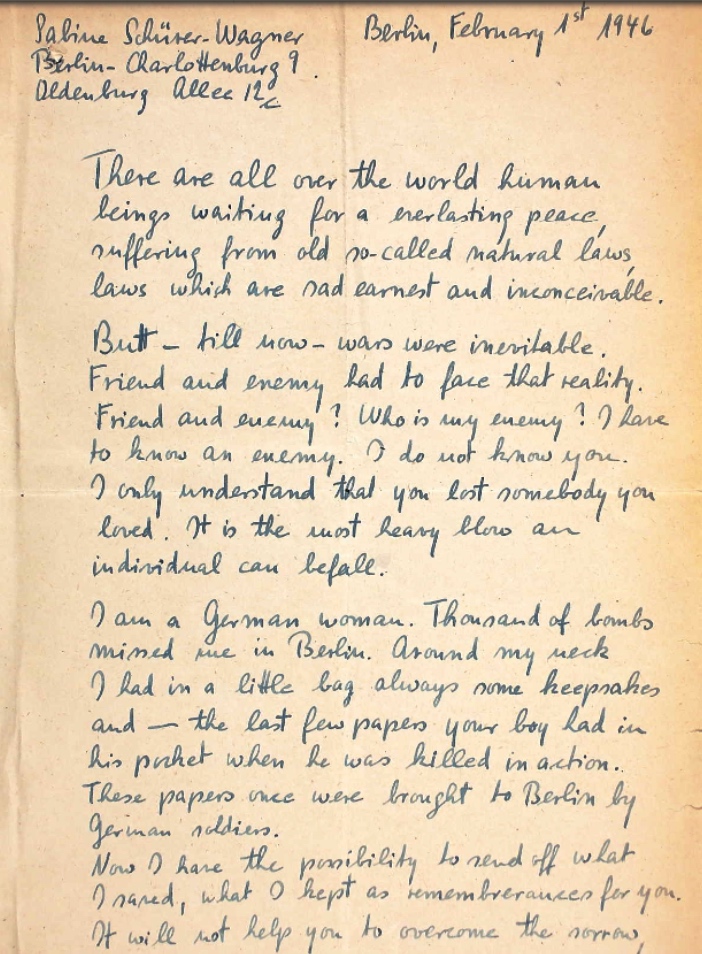 Sabine Schürer-Wagner
Berlin, February 1st 1946
Berlin-Charlottenburg 9.
Oldenburg Allee 12c
There are all over the world human
beings waiting for a everlasting peace,
suffering from old so-called natural laws,
laws which are sad earnest and inconceivable.
Butt – till now – wars were inevitable.
Friend and enemy had to face that reality.
Friend and enemy? Who is my enemy? I have
to know an enemy. I do not know you.
I only understand that you lost somebody you
loved. It is the most heavy blow an
individual can befall.
I am a German woman. Thousand of bombs
missed me in Berlin. Around my neck
I had in a little bag always some keepsakes
and — the last few papers your boy had in
his pocket when he was killed in action.
These papers once were brought to Berlin by
German soldiers.
Now I have the possibility to send off what
I saved, what I kept as remembrerances for you.
It will not help you to overcome the sorrow,